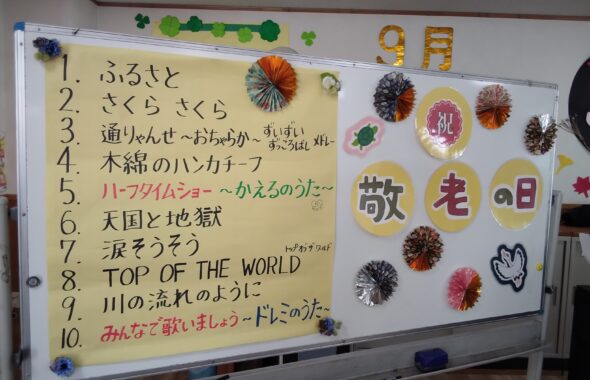 9月
1. ふるさと
2. さくら さくら
3. 通りゃんせ~おちゃらか~ ずいずいずっころばし メドレー
4. 木綿のハンカチーフ
5. ハーフタイムショー ~かえるのうた~
6. 天国と地獄
7. 涙そうそう
8. TOP OF THE WORLD トップ オブ ザ ワールド
9. 川の流れのように
10. みんなで歌いましょう ~ドレミのうた~
祝
敬老の日